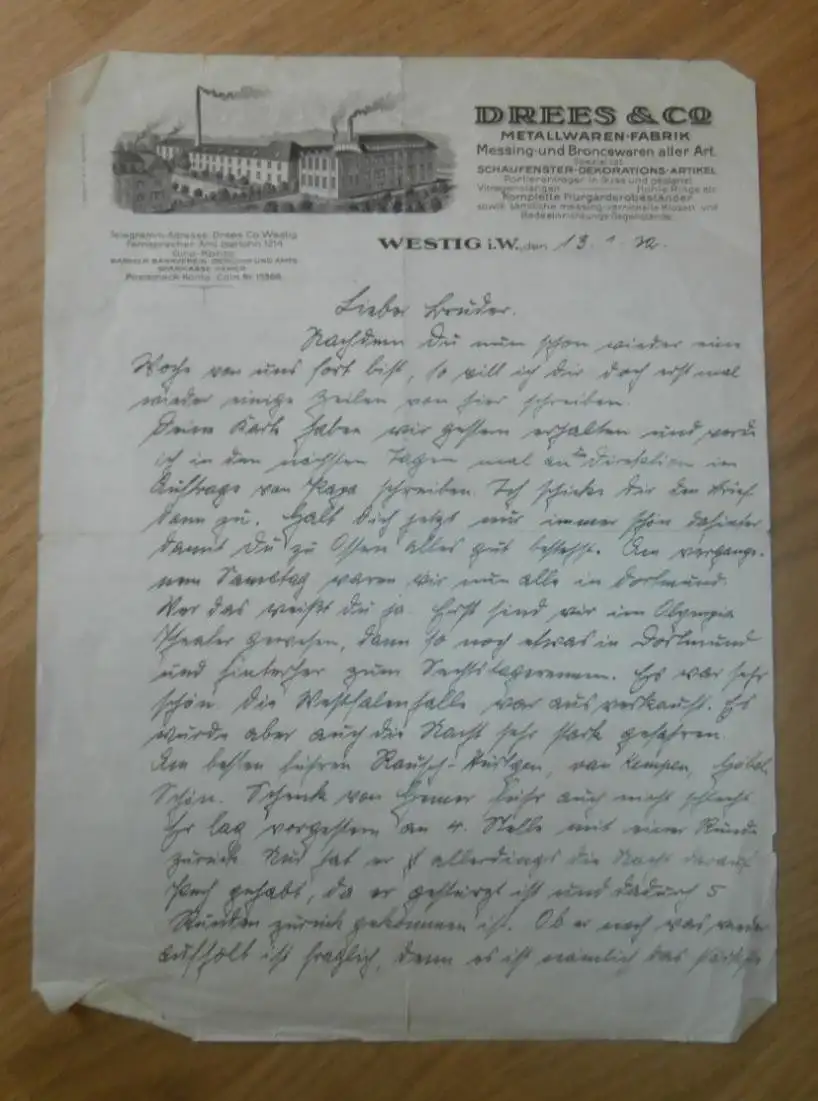 DREES & Co
METALLWAREN-FABRIK
Messing- und Broncewaren aller Art.
Spezialität
SCHAUFENSTER-DEKORATIONS-ARTIKEL
Portierenträger in Guss und gezogen
Vitragenstangen Hohle Ringe etc
Komplette Flurgarderobeständer
sowie sämtliche messing-vernickelte Klosett- und
Badeeinrichtungs-Gegenstände
Telegramm-Adresse: Drees Co Westig
Fernsprecher: Amt Iserlohn 1214
Giro-Konto:
BARMER BANKVEREIN, ISERLOHN UND
SPARKASSE HEMER
Postscheck-Konto: Cöln Nr.
WESTIG i.W., den 13.1.32.
Lieber Bruder.
Nachdem Du nun schon wieder eine
Woche von uns fort bist, so will ich dir doch erst mal
wieder einige Zeilen von hier schreiben.
Deine Karte haben wir gestern erhalten und werde
ich in den nächsten Tagen mal an die Direktion im
Auftrage von Papa schreiben. Ich schicke dir den Brief
dann zu. Halt Dich jetzt nur immer schön dahinter
damit Du zu Ostern alles gut bestehst. Am vergange-
nem Samstag waren wir nun alle in Dortmund.
Wer das weißt du ja. Erst sind wir im Olympia
Theater gewesen, dann so noch etwas in Dortmund
und hinterher zum Sechstagerennen. Es war sehr
schön. Die Westfalenhalle war ausverkauft. Es
wurde aber auch die Nacht sehr stark gefahren.
Am besten fuhren Rausch-Hürtgen, van Kempen,
Schön. Schenk von Hemer fuhr auch nicht schlecht
Er lag vorgestern an 4. Stelle mit einer Runde
zurück. Nun hat er allerdings die Nacht darauf
Pech gehabt, da er gestürzt ist und dadurch 5
Runden zurück gekommen ist. Ob er noch was wieder
aufholt ist fraglich, denn es ist nämlich das stärkste